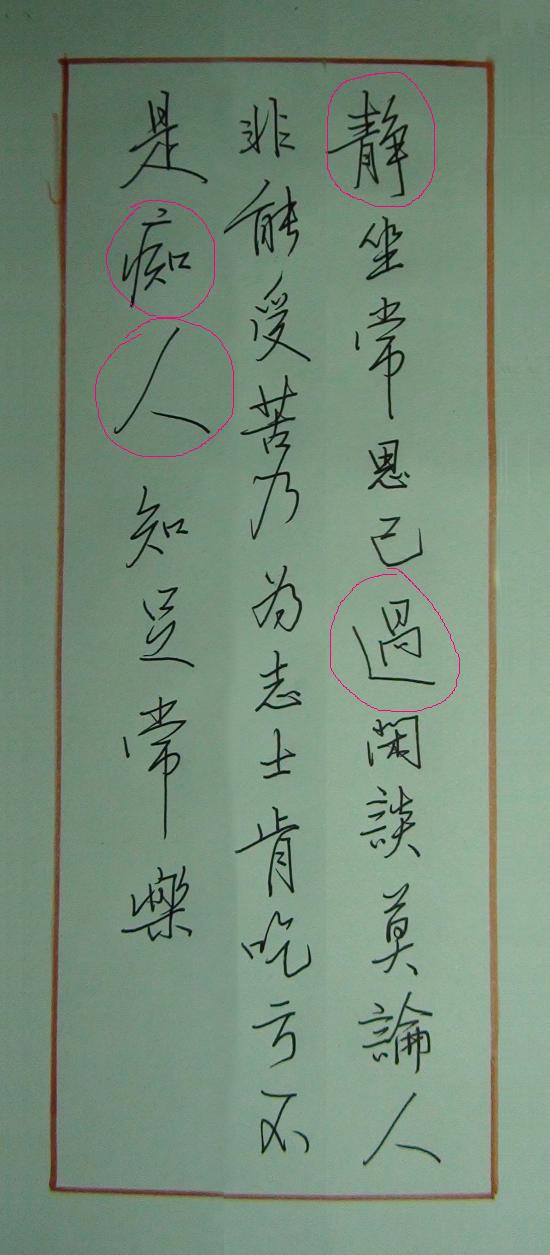 靜坐常思己過閑談莫論人
非能受苦乃為志士肯吃亏不
是痴人知足常樂